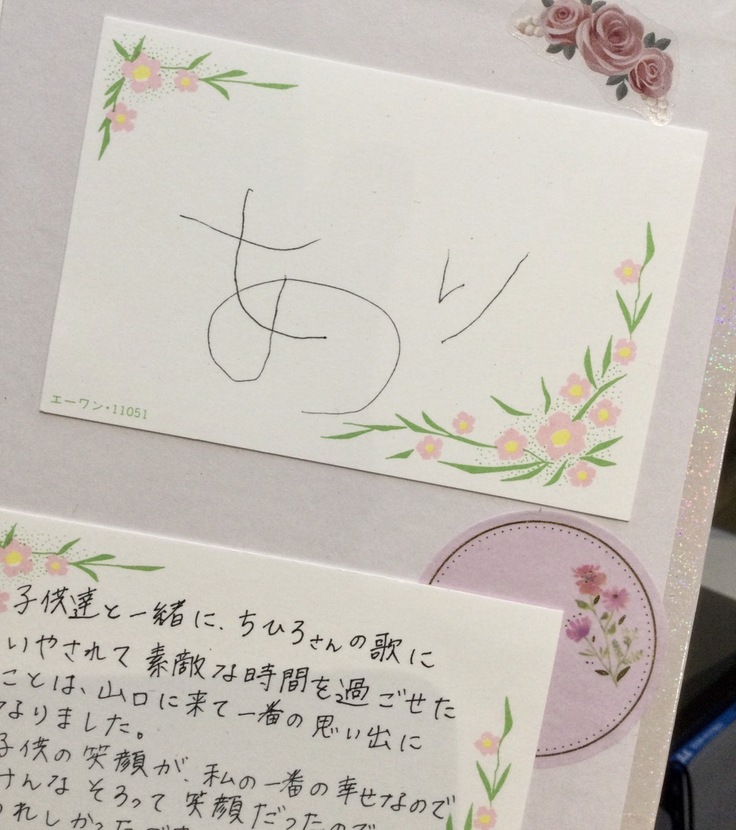 あり
エーワン・11051
子供達と一緒に、ちひろさんの歌に
いやされて素敵な時間を過ごせた
ことは、山口に来て一番の思い出に
なりました。
子供の笑顔が、私の一番の幸せなので
さんな そろって 笑顔だったので
れしかったです